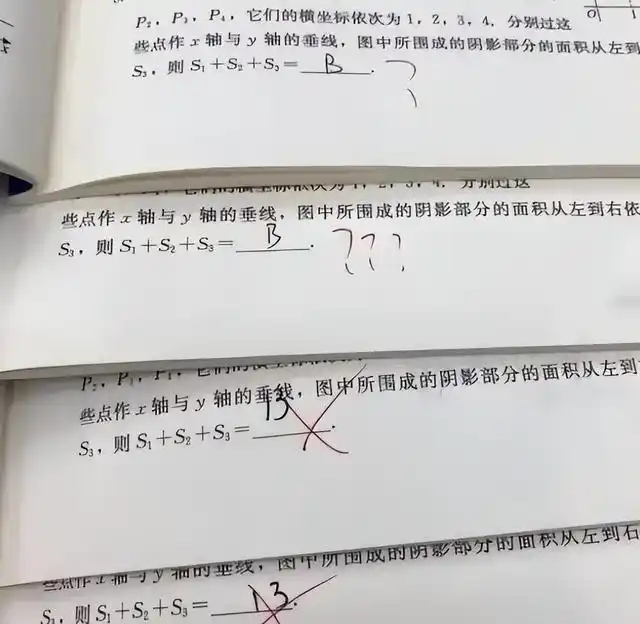 P₂, P₃, P₄, 它们的横坐标依次为 1, 2, 3, 4, 分别过这
些点作 x 轴与 y 轴的垂线, 图中所围成的阴影部分的面积从左到
S₃, 则 S₁+S₂+S₃= B . ?
O 1
些点作 x 轴与 y 轴的垂线, 图中所围成的阴影部分的面积从左到右依
S₃, 则 S₁+S₂+S₃= B . ???
些点作 x 轴与 y 轴的垂线, 图中所围成的阴影部分的面积从左到
S₃, 则 S₁+S₂+S₃= 13 .
些点作 x 轴与 y 轴的垂线, 图中所围成的阴影部分的面积从左到右
S₃, 则 S₁+S₂+S₃= 13 .